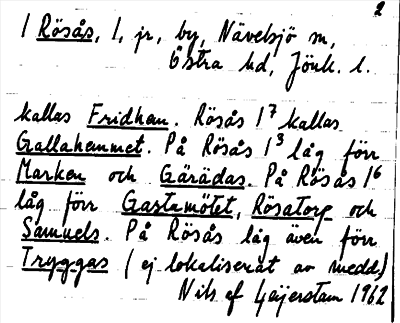 2
1 Rösås, 1, jr, by, Nävelsjö sn,
Östra hd, Jönk. l.
kallas Fridhem. Rösås 1⁷ kallas
Gallahemmet. På Rösås 1³ låg förr
Marken och Gärädas. På Rösås 1⁶
låg förr Gastamötet, Rösatorp och
Samuels. På Rösås låg även förr
Tryggas (ej lokaliserat av medd.)
Nils af Geijerstam 1962